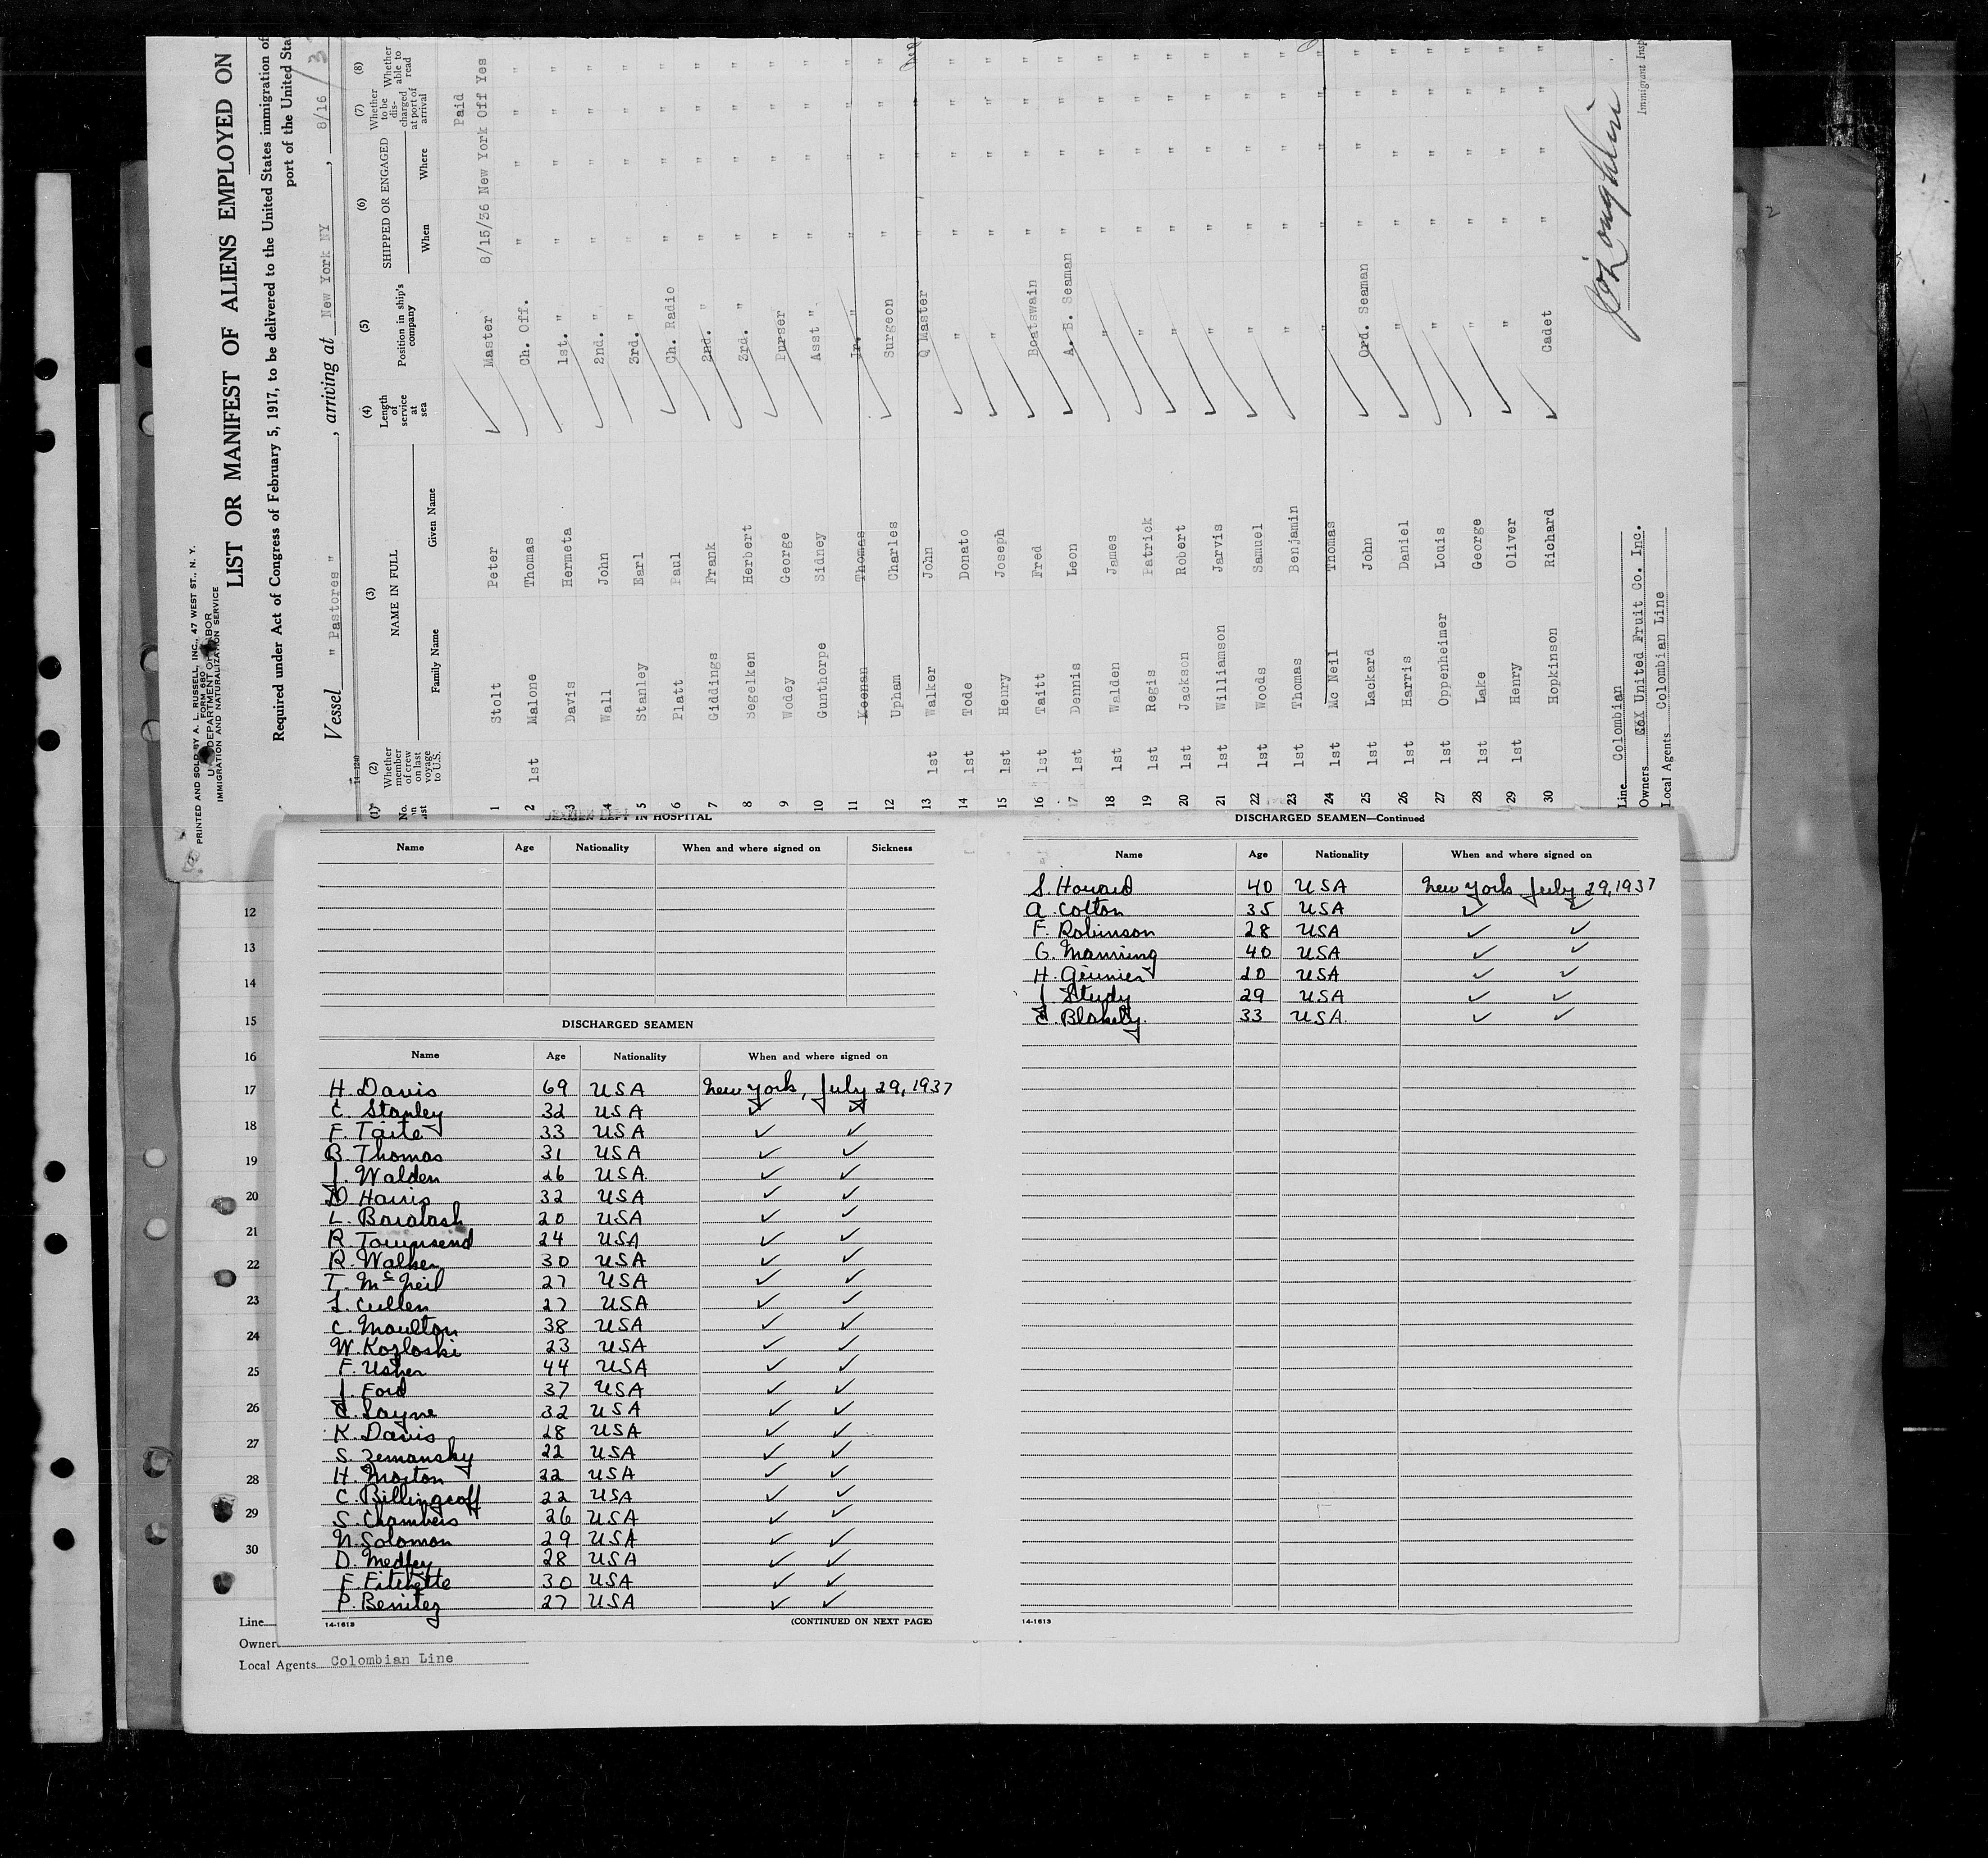 PRINTED AND SOLD BY A. L. RUSSELL, INC., 47 WEST ST., N. Y.
FORM 680
U. S. DEPARTMENT OF LABOR
IMMIGRATION AND NATURALIZATION SERVICE
LIST OR MANIFEST OF ALIENS EMPLOYED ON
Required under Act of Congress of February 5, 1917, to be delivered to the United States immigration of
port of the United Sta
Vessel " Pastores " , arriving at New York NY , 8/16/3
14-1240
(1) No. on list (2) Whether member of crew on last voyage to U.S. (3) NAME IN FULL Family Name Given Name (4) Length of service at sea (5) Position in ship's company (6) SHIPPED OR ENGAGED When Where (7) Whether to be discharged at port of arrival (8) Whether able to read
Paid
1 Stolt Peter Master 8/15/36 New York Off Yes
2 1st Malone Thomas Ch. Off. " " " "
3 Davis Hermeta 1st. " " " " "
4 Wall John 2nd. " " " " "
5 Stanley Earl 3rd. " " " " "
6 Platt Paul Ch. Radio " " " "
7 Giddings Frank 2nd. " " " " "
8 Segelken Herbert 3rd. " " " " "
9 Wodey George Purser " " " "
10 Gunthorpe Sidney Asst " " " " "
11 Keenan Thomas Jr. " " " " "
12 Upham Charles Surgeon " " " "
13 1st Walker John Q Master " " "
14 1st Tode Donato " " " " "
15 1st Henry Joseph " " " " "
16 1st Taitt Fred Boatswain " " " "
17 1st Dennis Leon A. B. Seaman " " " "
18 1st Walden James " " " " "
19 1st Regis Patrick " " " " "
20 1st Jackson Robert " " " " "
21 1st Williamson Jarvis " " " " "
22 1st Woods Samuel " " " " "
23 1st Thomas Benjamin " " " " "
24 1st Mc Neil Thomas " " " " "
25 1st Lackard John Ord. Seaman " " " "
26 1st Harris Daniel " " " " "
27 1st Oppenheimer Louis " " " " "
28 1st Lake George " " " " "
29 1st Henry Oliver " " " " "
30 Hopkinson Richard Cadet " " " "
Line Colombian
Owners United Fruit Co. Inc.
Local Agents Colombian Line
Immigrant Insp
SEAMEN LEFT IN HOSPITAL
Name Age Nationality When and where signed on Sickness
DISCHARGED SEAMEN
Name Age Nationality When and where signed on
H. Davis 69 USA New York, July 29, 1937
E. Stanley 32 USA ✓ ✓
F. Taite 33 USA ✓ ✓
B. Thomas 31 USA ✓ ✓
J. Walden 26 USA. ✓ ✓
D. Harris 32 USA ✓ ✓
L. Baralash 20 USA ✓ ✓
R. Townsend 24 USA ✓ ✓
R. Walker 30 USA ✓ ✓
T. McNeil 27 USA ✓ ✓
J. Cullen 27 USA ✓ ✓
C. Moulton 38 USA ✓ ✓
W. Kozloski 23 USA ✓ ✓
F. Usher 44 USA ✓ ✓
J. Ford 37 USA ✓ ✓
C. Layne 32 USA ✓ ✓
K. Davis 28 USA ✓ ✓
S. Zemansky 22 USA ✓ ✓
H. Morton 22 USA ✓ ✓
C. Billingcoff 22 USA ✓ ✓
S. Chambers 26 USA ✓ ✓
N. Solomon 29 USA ✓ ✓
D. Medley 28 USA ✓ ✓
F. Fitchette 30 USA ✓ ✓
P. Benitez 27 USA ✓ ✓
14-1613 (CONTINUED ON NEXT PAGE)
DISCHARGED SEAMEN—Continued
Name Age Nationality When and where signed on
S. Howard 40 USA New York July 29, 1937
A. Colton 35 USA ✓ ✓
F. Robinson 28 USA ✓ ✓
G. Manning 40 USA ✓ ✓
H. 20 USA ✓ ✓
J. Study 29 USA ✓ ✓
E. Blakely. 33 USA. ✓ ✓
14-1613
12
13
14
15
16
17
18
19
20
21
22
23
24
25
26
27
28
29
30
Line
Owner
Local Agents Colombian Line
2